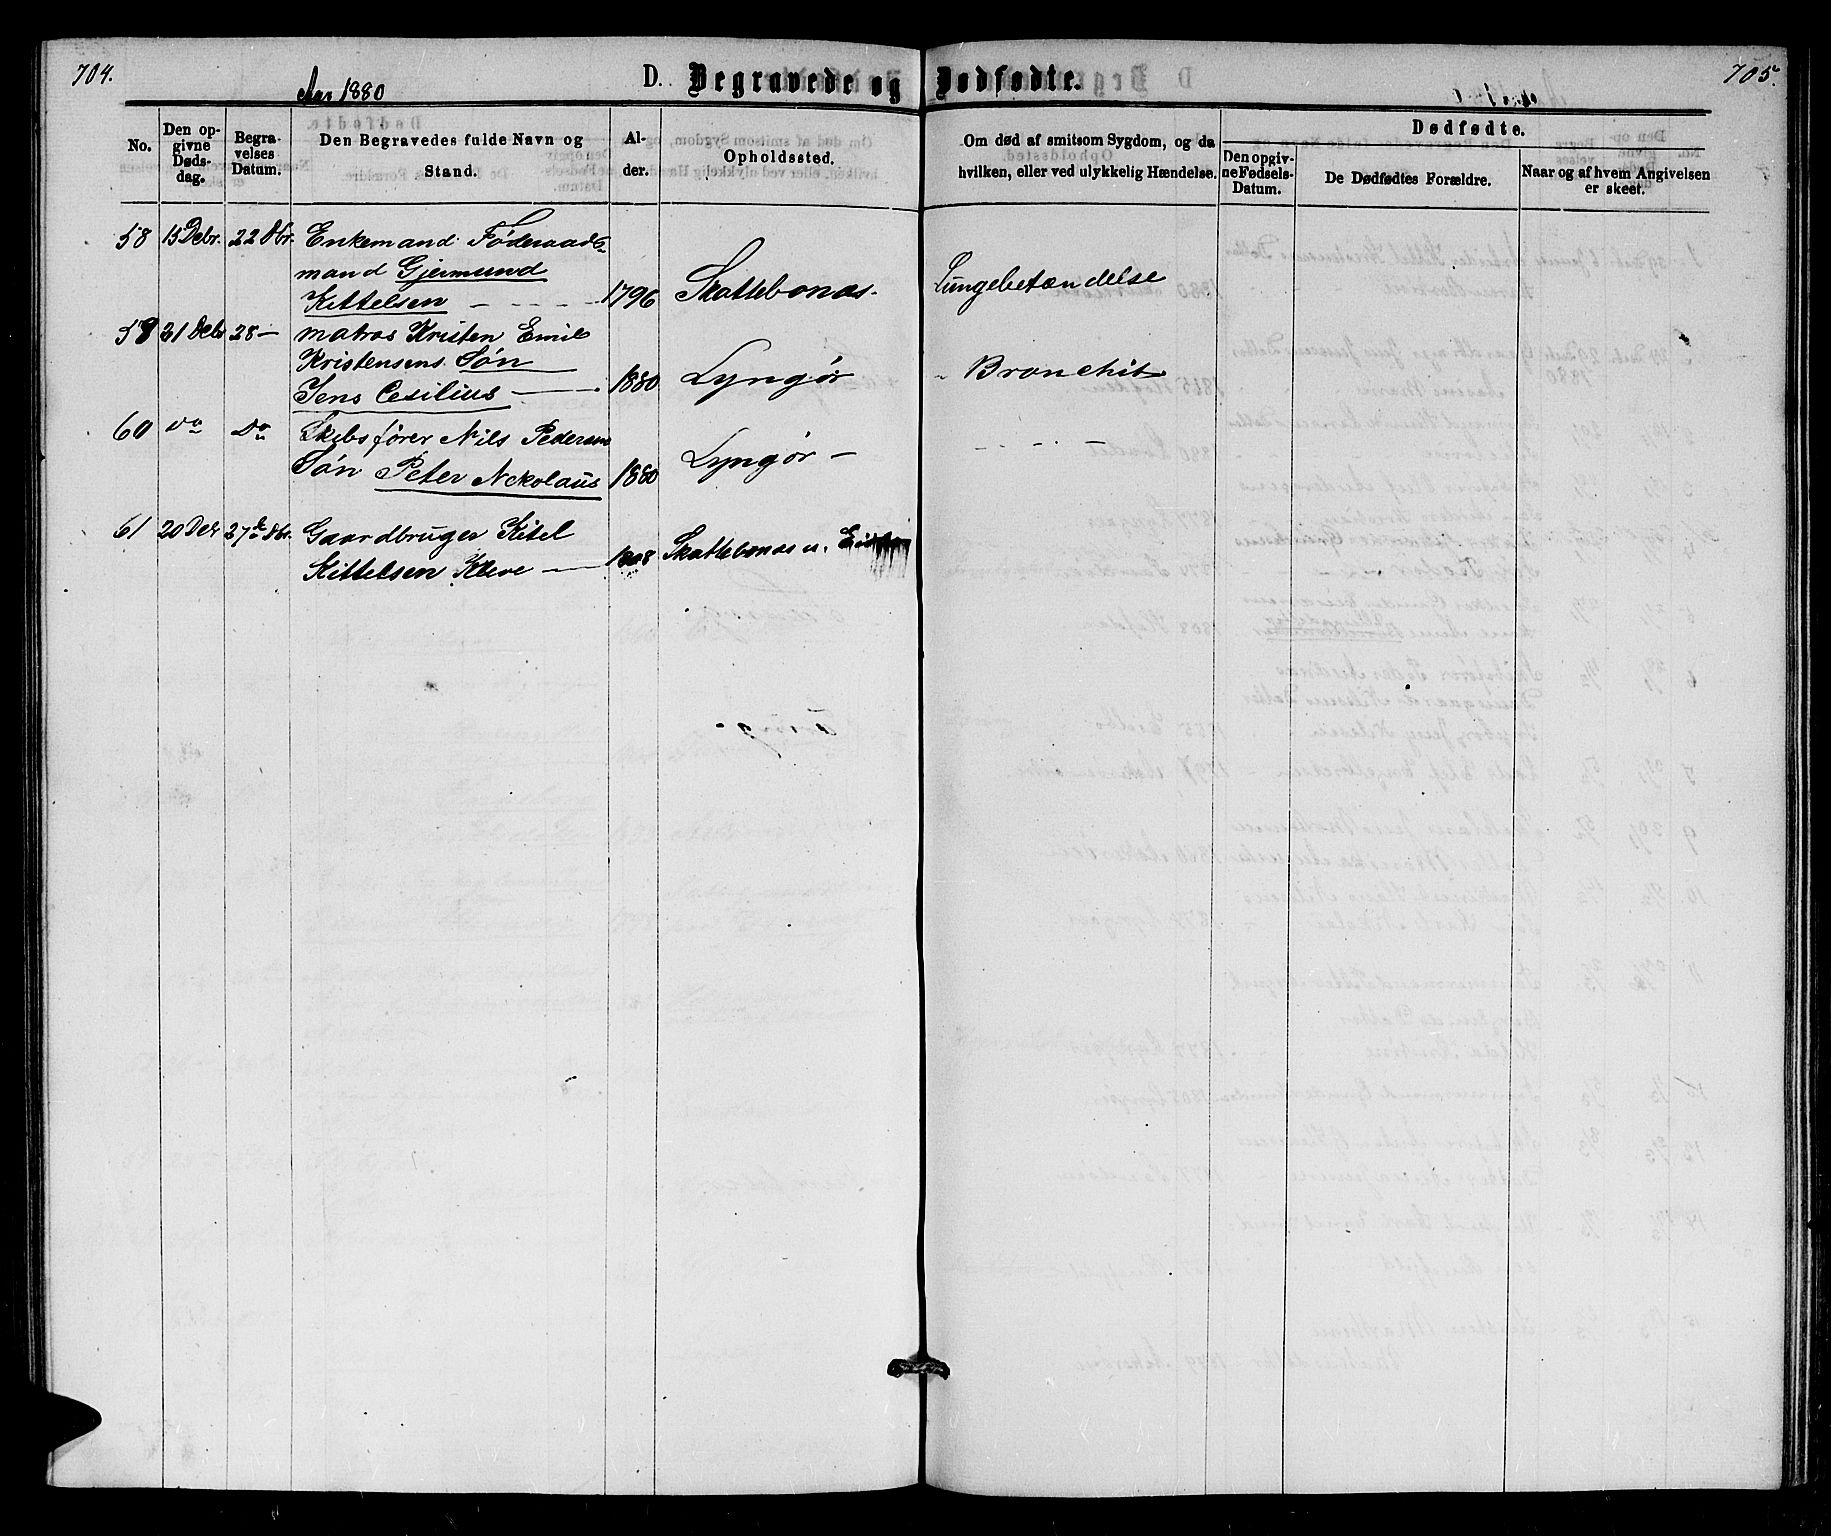 704.
Aar 1880
D. Begravede og Dødfødte.
705.
No.
Den op-
givne
Døds-
dag.
Begra-
velses
Datum.
Den Begravedes fulde Navn og
Stand.
Al-
der.
Opholdssted.
Om død af smitsom Sygdom, og da
hvilken, eller ved ulykkelig Hændelse.
Dødfødte.
Den opgiv-
ne Fødsels-
Datum.
De Dødfødtes Forældre.
Naar og af hvem Angivelsen
er skeet.
58 15 Debr. 22 Dbr. Enkemand Föderaads-
mand Gjermund
Kittelsen - - - - 1796 Skattebonæs. Lungebetændelse
58 21 Debr 28 — matros Kristen Emil
Kristensens Søn
Jens Cesilius — 1880 Lyngør Bronchit
60 do Do Skibsfører Nils Pedersen
Søn Peter Nekolaus 1880 Lyngør — - - - -
61 20 Debr 27de Dbr. Gaardbruger Kitel
Kittelsen Kleve — 1808 Skattebonæs u.